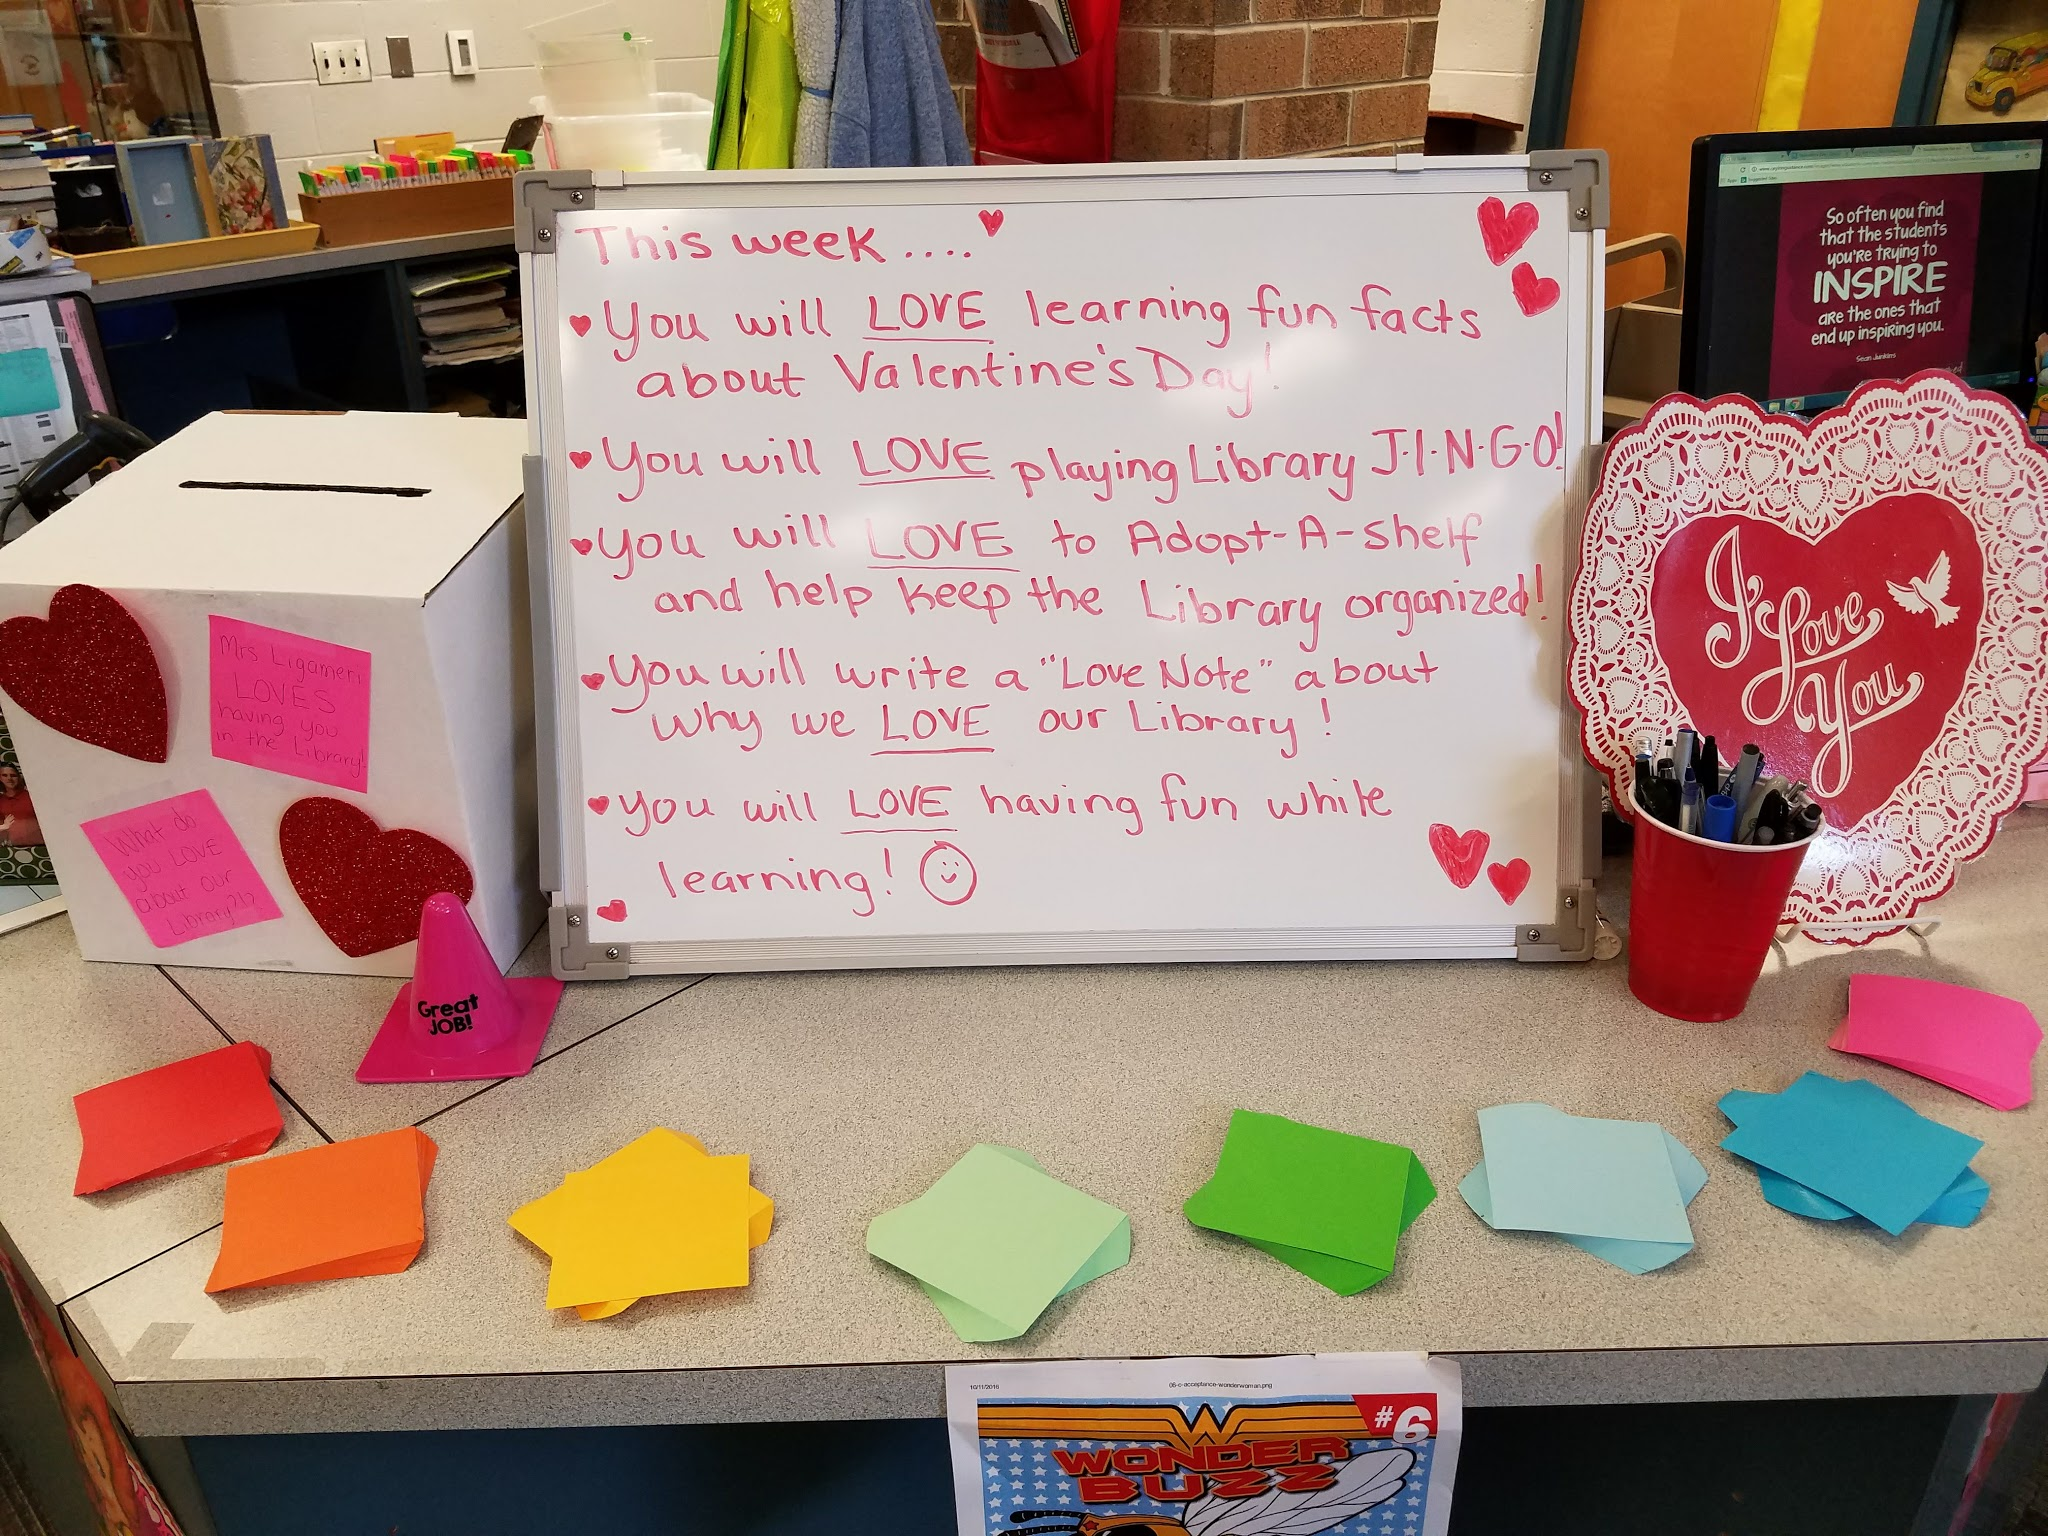 This week....
You will LOVE learning fun facts
about Valentine's Day!
You will LOVE playing Library J·I·N·G·O!
You will LOVE to Adopt-A-Shelf
and help keep the Library organized!
You will write a "Love Note" about
why we LOVE our Library!
You will LOVE having fun while
learning!
Mrs Ligameri
LOVES
having you
in the Library!
What do
you LOVE
about our
Library?!?
Great
JOB!
So often you find
that the students
you're trying to
INSPIRE
are the ones that
end up inspiring you.
Sean Junkins
I Love
You
10/11/2016
06-c-acceptance-wonderwoman.png
#6
WONDER
BUZZ